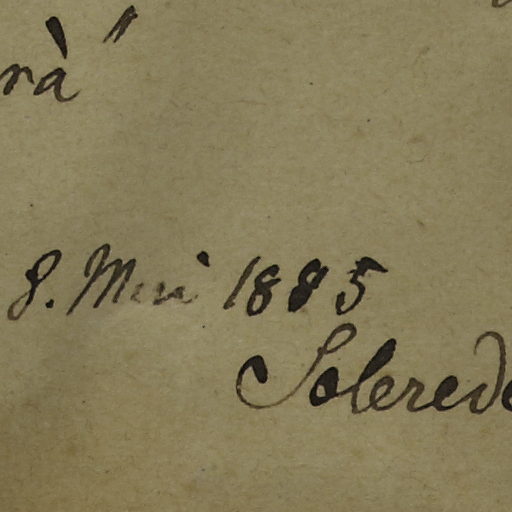 rà"
8. Mai 1885
Solerede